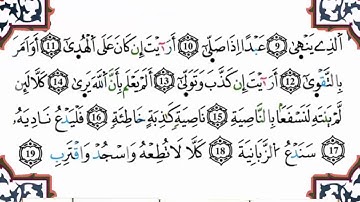 ٱلَّذِى يَنْهَىٰ ⑨ عَبْدًا إِذَا صَلَّىٰٓ ⑩ أَرَءَيْتَ إِن كَانَ عَلَى ٱلْهُدَىٰٓ ⑪ أَوْ أَمَرَ
بِٱلتَّقْوَىٰٓ ⑫ أَرَءَيْتَ إِن كَذَّبَ وَتَوَلَّىٰٓ ⑬ أَلَمْ يَعْلَم بِأَنَّ ٱللَّهَ يَرَىٰ ⑭ كَلَّا لَئِن
لَّمْ يَنتَهِ لَنَسْفَعًۢا بِٱلنَّاصِيَةِ ⑮ نَاصِيَةٍ كَٰذِبَةٍ خَاطِئَةٍ ⑯ فَلْيَدْعُ نَادِيَهُۥ
⑰ سَنَدْعُ ٱلزَّبَانِيَةَ ⑱ كَلَّا لَا تُطِعْهُ وَٱسْجُدْ وَٱقْتَرِب ⑲